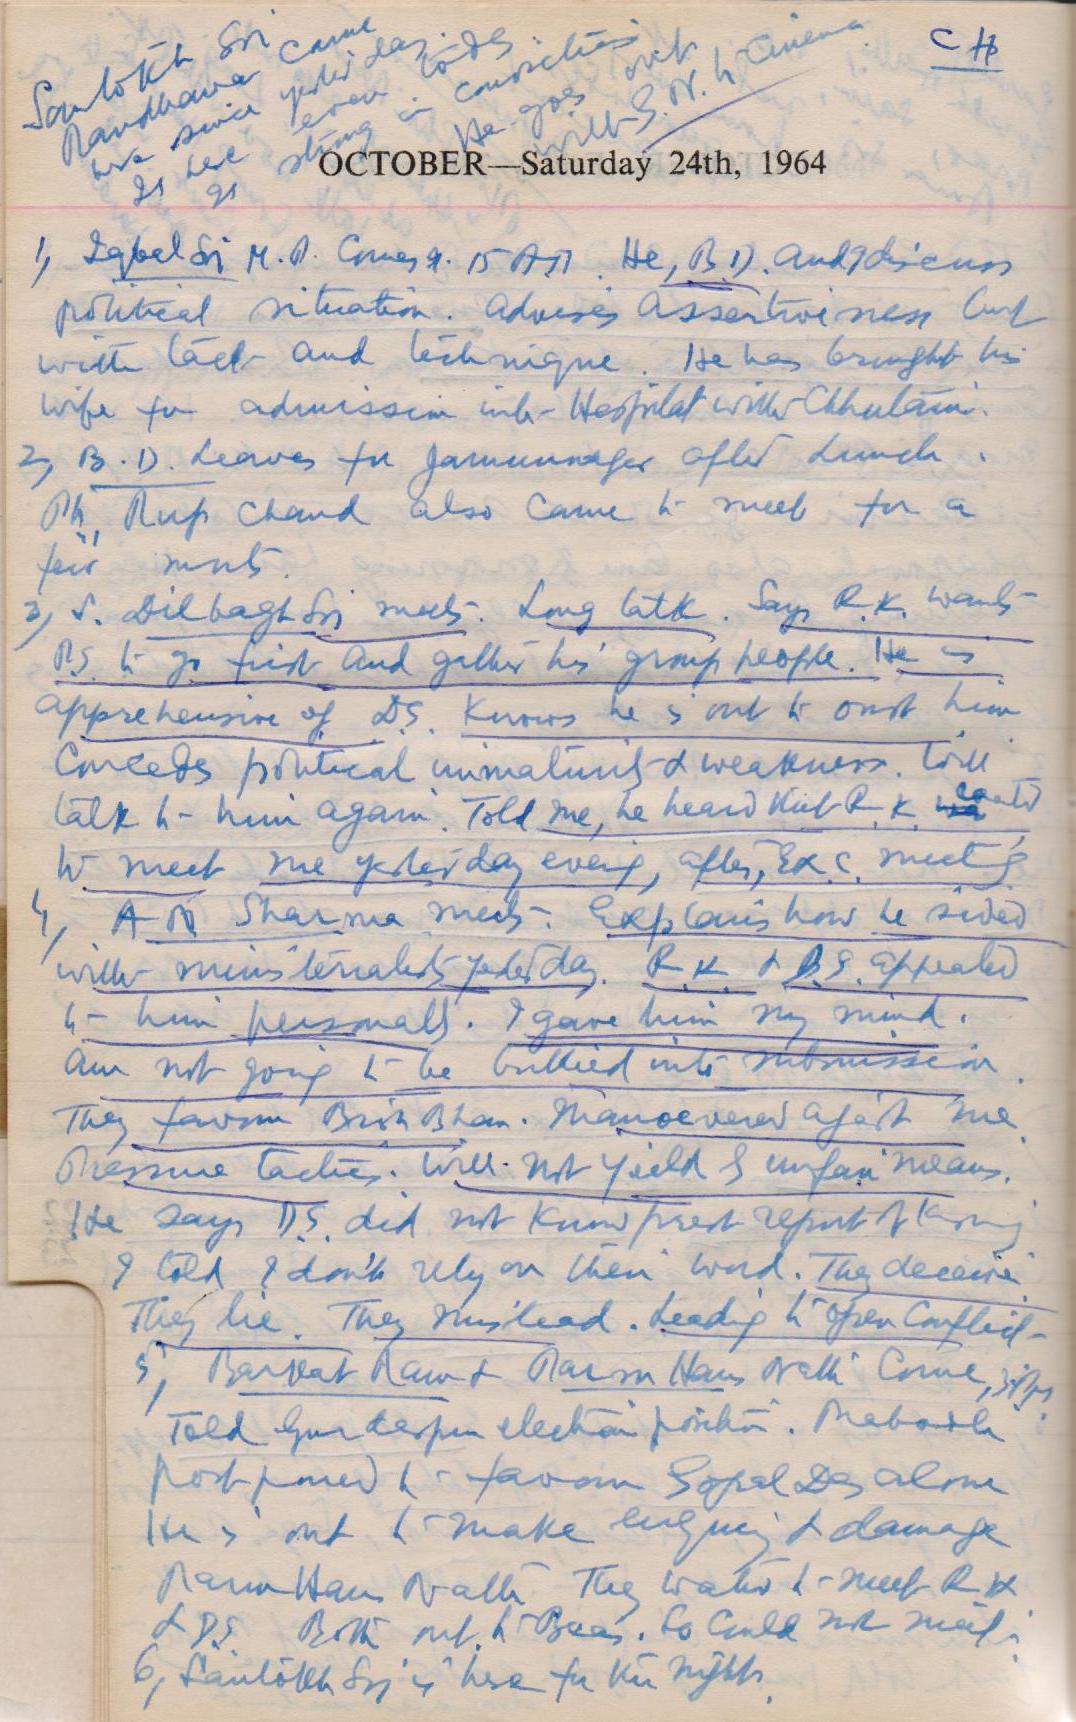 Santokh Sri
Randhawa came
here since yesterday.
Is here even today.
Is strong in convictions
He goes out
with S. N. to Cinema
CH
OCTOBER—Saturday 24th, 1964
1, Iqbal Sri M.P. Comes 9.15 AM. He, B.D. and I discuss
political situation. Advises Assertiveness but
with tact and technique. He has brought his
wife for admission into Hospital with Chhutani.
2, B.D. Leaves for Jamunnagar after Lunch.
Pt. Rup Chand also came to meet for a
few mnts.
3, S. Dilbagh Sri meets. Long talk. Says R.K. wants
P.S. to go first and gather his group people. He is
apprehensive of D.S. Knows he is out to oust him
Concedes political immaturity & weakness. Will
talk to him again. Told me, he heard that R.K. wanted
to meet me yesterday evening, after, Ex.C. meeting
4, A N Sharma meets. Explains how he sided
with ministerialists yesterday. R.K. & D.S. appealed
to him personally. I gave him my mind.
am not going to be bullied into submission.
They favour Brish Bhan. Manoevered against me
Pressure tactics. Will not yield to unfair means.
He says D.S. did not know press report of
I told I don't rely on their word. They deceive
They lie. They mislead. Leading to open Conflict
5, Barkat Ram & Parm Hans Nath Come,
Told Gurdaspur election position. Prabodh
postponed to favour Gopal Das alone
He is out to make enquiry & damage
Param Hans Nath They wanted to meet R K
& D.S. Both out to Beas. So Could not meet.
6, Santokh Sri is here for the night.